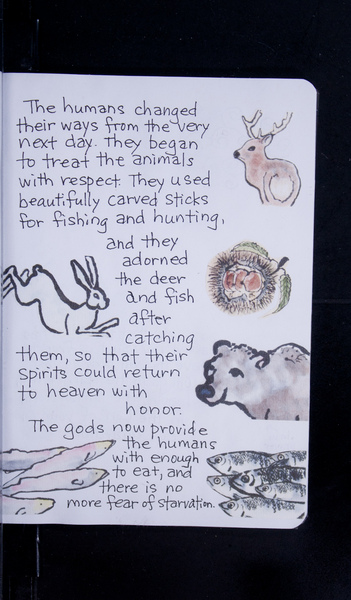 The humans changed
their ways from the very
next day. They began
to treat the animals
with respect. They used
beautifully carved sticks
for fishing and hunting,
and they
adorned
the deer
and fish
after
catching
them, so that their
spirits could return
to heaven with
honor.
The gods now provide
the humans
with enough
to eat, and
there is no
more fear of starvation.